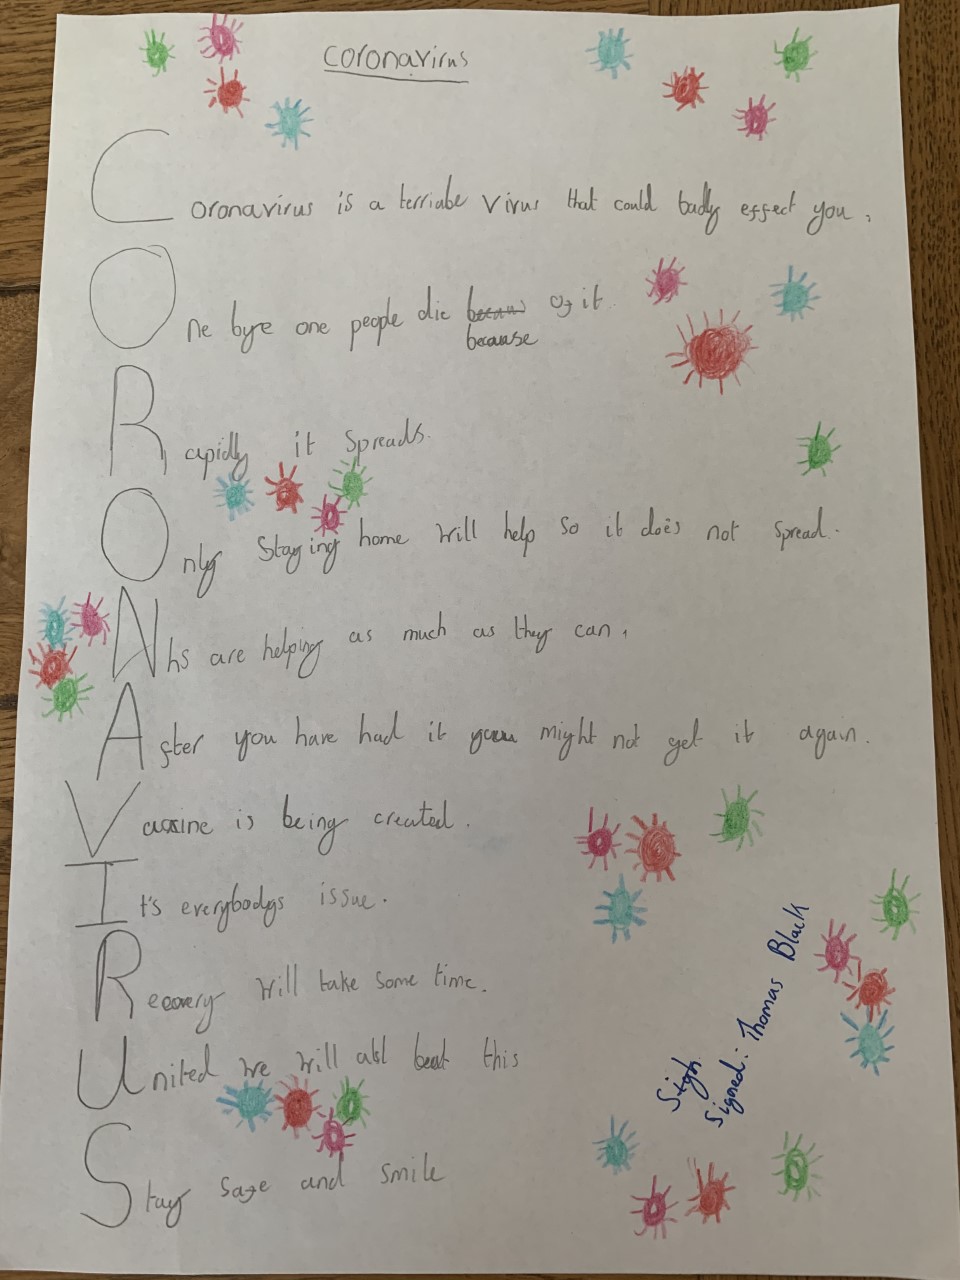 Coronavirus
Coronavirus is a terriabe virus that could badly effect you,
One bye one people die because of it.
because
Rapidly it spreads.
Only Staying home will help so it does not spread.
Nhs are helping as much as they can,
After you have had it you might not get it again.
Vaxine is being created.
It's everybodys issue.
Recovery will take some time.
United we will all beat this
Stay safe and smile
Sigh
Signed: Thomas Black